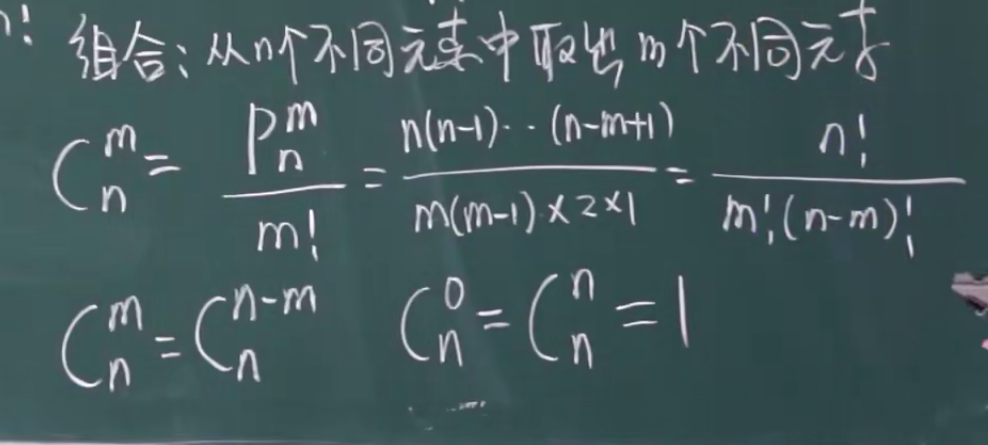 n!
组合:从n个不同元素中取出m个不同元素
C_n^m = P_n^m / m! = n(n-1)··(n-m+1) / m(m-1)·×2×1 = n! / m!(n-m)!
C_n^m = C_n^{n-m}  C_n^0 = C_n^n = 1